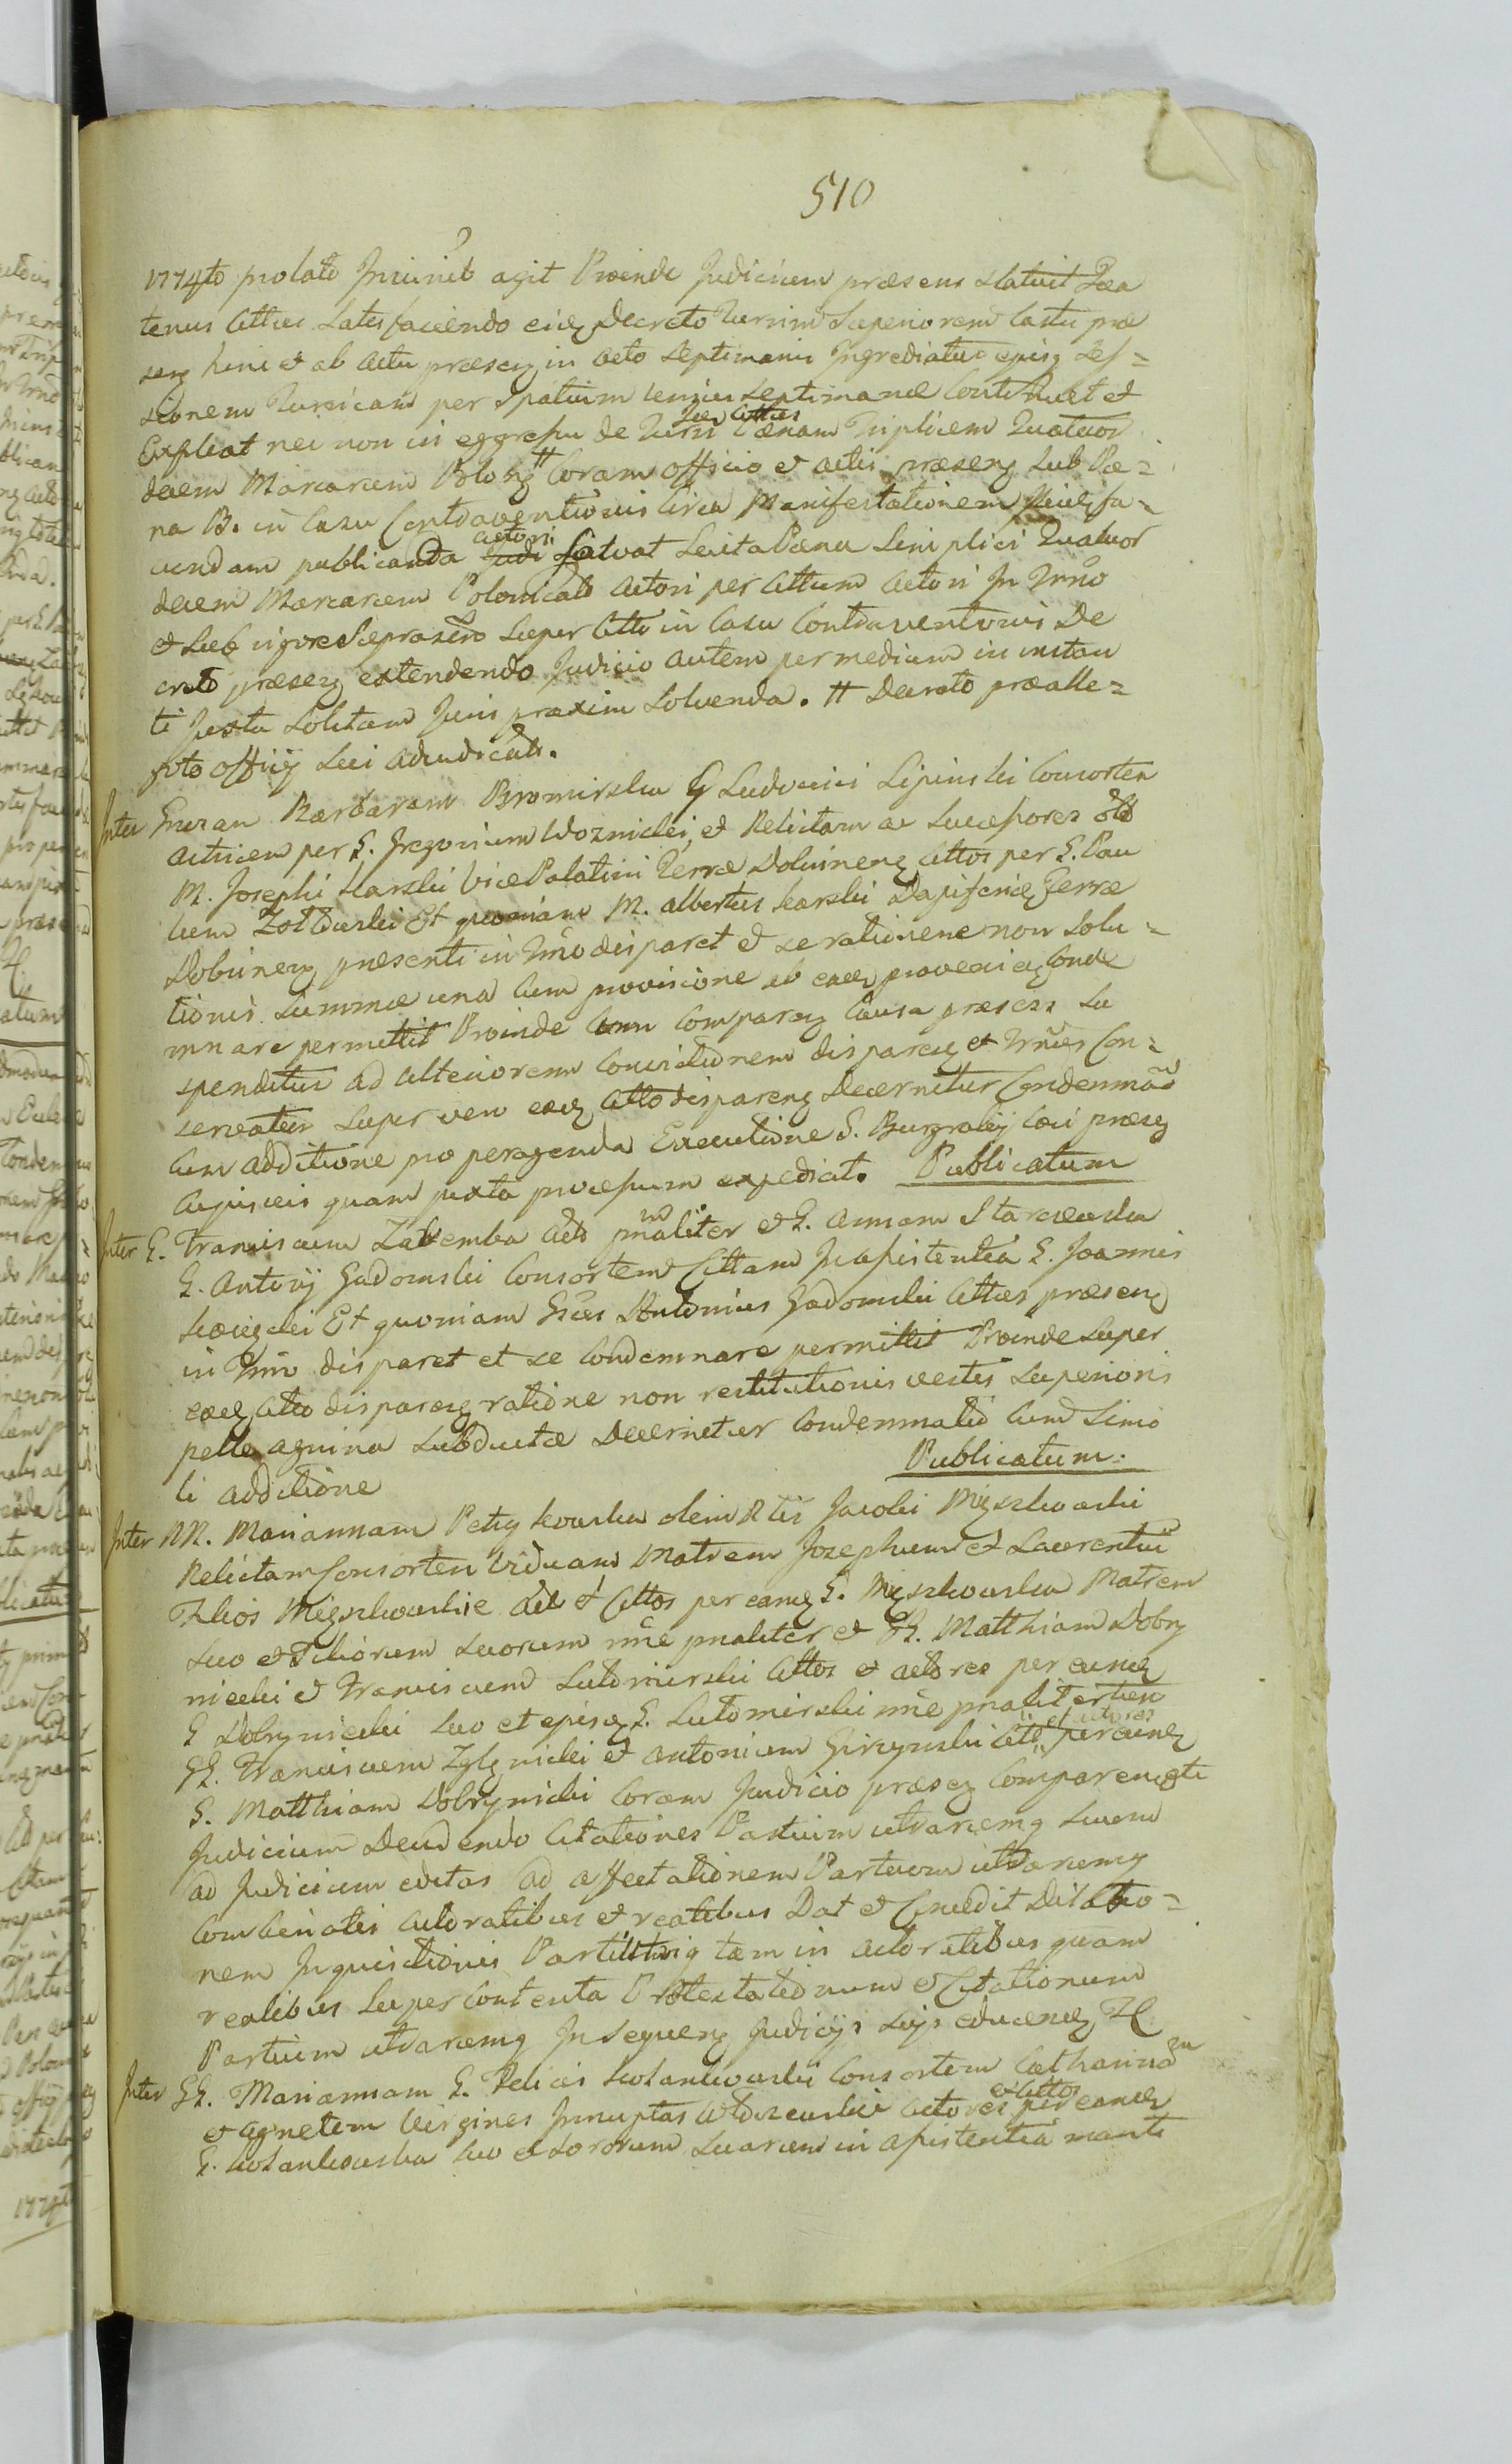 510
1774to prolato Iniunct agit Proinde Judicium præsens statuit Qua
tenus Cittus satisfaciendo eidq Decreto Turrim Superiorem Castri præ
senq hinc et ab actu præsenq in octo septimanis Ingrediatur ejusq Ses=
sionem Turricam per spatium unius septimanæ Continuet et
Expleat nec non in eggressu de Turri idem Cittus Pœnam Triplicem Quatuor
decem Marcarum Polonq # Coram officio et actis præsenq sub Pœ=
na B. in Casu Contraventionis circa Manifestationem fa=
ciendam publicanda actori solvat secuta Pœna simplici Quatuor
decem Marcarum Polonical actori per Cittum actori In Trno
et sub rigore super Citto in Casu Contraventionis De
creto præsenq extendendo Judicio autem per medium in instan
ti Juxta solitam Juris praxim solvenda. # Decreto præalle=
gato officij sui adiudicatt.
Inter Gnrsam Barbaram Bromirska G Ludovici Lipinski Consorten
actricem per G. Gregorium Woznicki, et Relictam ac Successores olt
M. Josephi Karski Vice Palatini Terræ Dobrinenq Cittos per G. Pau
lum Zołtowski Et quoniam M. Albertus Karski Dapiferidq Terræ
Dobrinenq præsenti in Trno disparet et se ratione non solu=
tionis summæ una cum provisione ab eadq provenienq Conde
mnare permittit Proinde Cum Comparenq Causa præsens su
spenditur ad ulteriorem Convictionem disparenq et Trnus Con=
servatur super vero eodq Citto disparenq Decernitur Condemnao
cum additione pro peragenda Executione S. Burgrabij loci præsenq
cujusvis quam juxta processum expediat. Publicatum
Inter G. Franciscum Zaremba act pnaliter et G. Annam Starczewska
G. Antonij Gadomski Consortem Cittam In assistentia G. Joannis
Et quoniam Gsus Antonius Gadomski Cittus præsenq
in Trno disparet et se Condemnare permittit Proinde super
eodq Citto disparenq ratione non restitutionis vestis superioris
pelle agnina subductæ Decernitur Condemnatio cum simi
li additione
Publicatum.
Inter NN. Mariannam Petrykowska olim Ntis Jacobi Myszkowski
Relictam Consorten Viduam Matrem Josephum et Laurentiu
Filios Myszkowskie act et Cittos per eamq G. Myszkowska Matrem
suo et Filiorum suorum nne pnaliter et GG. Matthiam Dobrz
niecki et Franciscum Lutomirski Cittos et actores per eundq
G Dobrzniecki suo et ejusq G. Lutomirski nne pnaliter tum
GG. Franciscum Zglynicki et Antonium Giżynski Citt et actores per eunq
G. Matthiam Dobrznicki Coram Judicio præsenq Comparen
Judicium Deudendo Citationes Partium utrarumq suum
ad Judicium editas ad affectationem Partium utrarumq
Combinatis actoratibus et reatibus Dat et Concedit Dilatio=
nem Inquisitionis Parti utriq tam in actoratibus quam
reatibus super Contenta Protestationum et Citationum
Partium utrarumq In sequenq Judicijs suis educenq
Inter GG. Mariannam G. Felicis Kolankowski Consortem Catharinam
et Agnetem Virgines Innuptas actores et Cittos per eamq
G. Kolankowska suo et sororum suarum in assistentia mariti